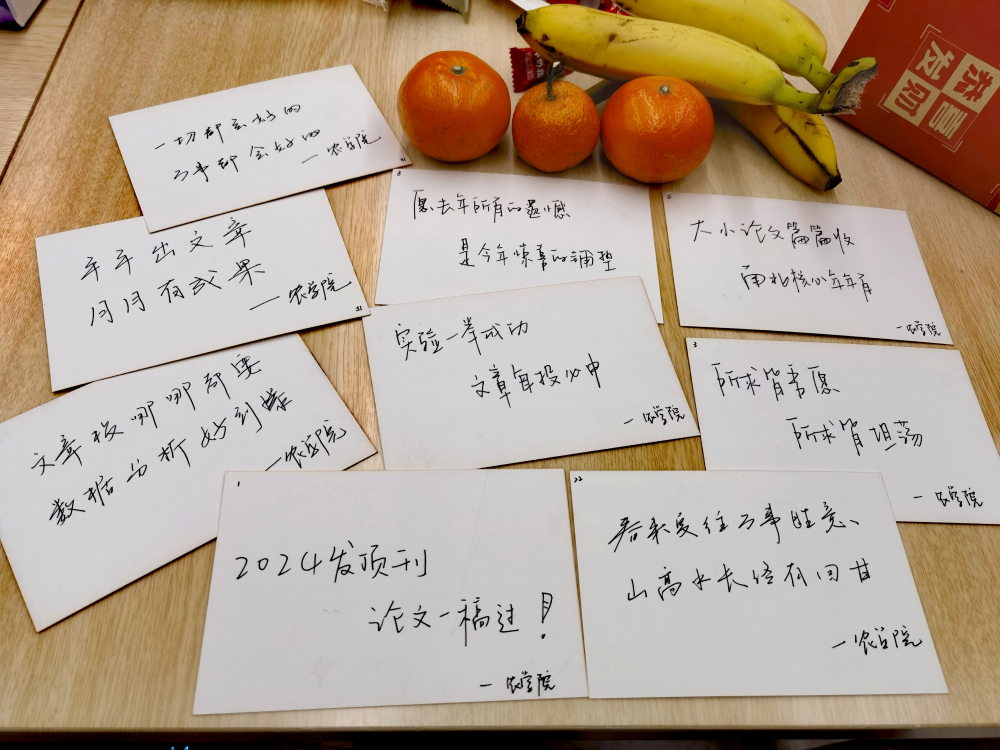 恭喜
发财
一切都会好的
万事都会好的
—农学院
8
愿去年所有的遗憾
是今年惊喜的铺垫
大小论文篇篇收
南北核心年年有
—农学院
年年出文章
月月有成果
—农学院
51
实验一举成功
文章每投必中
—农学院
3
所求皆愿
所求皆坦荡
—农学院
文章投哪哪都要
数据分析好到爆
—农学院
1
2024发顶刊
论文一稿过！
—农学院
22
春来夏往万事胜意、
山高水长终有回甘
—农学院